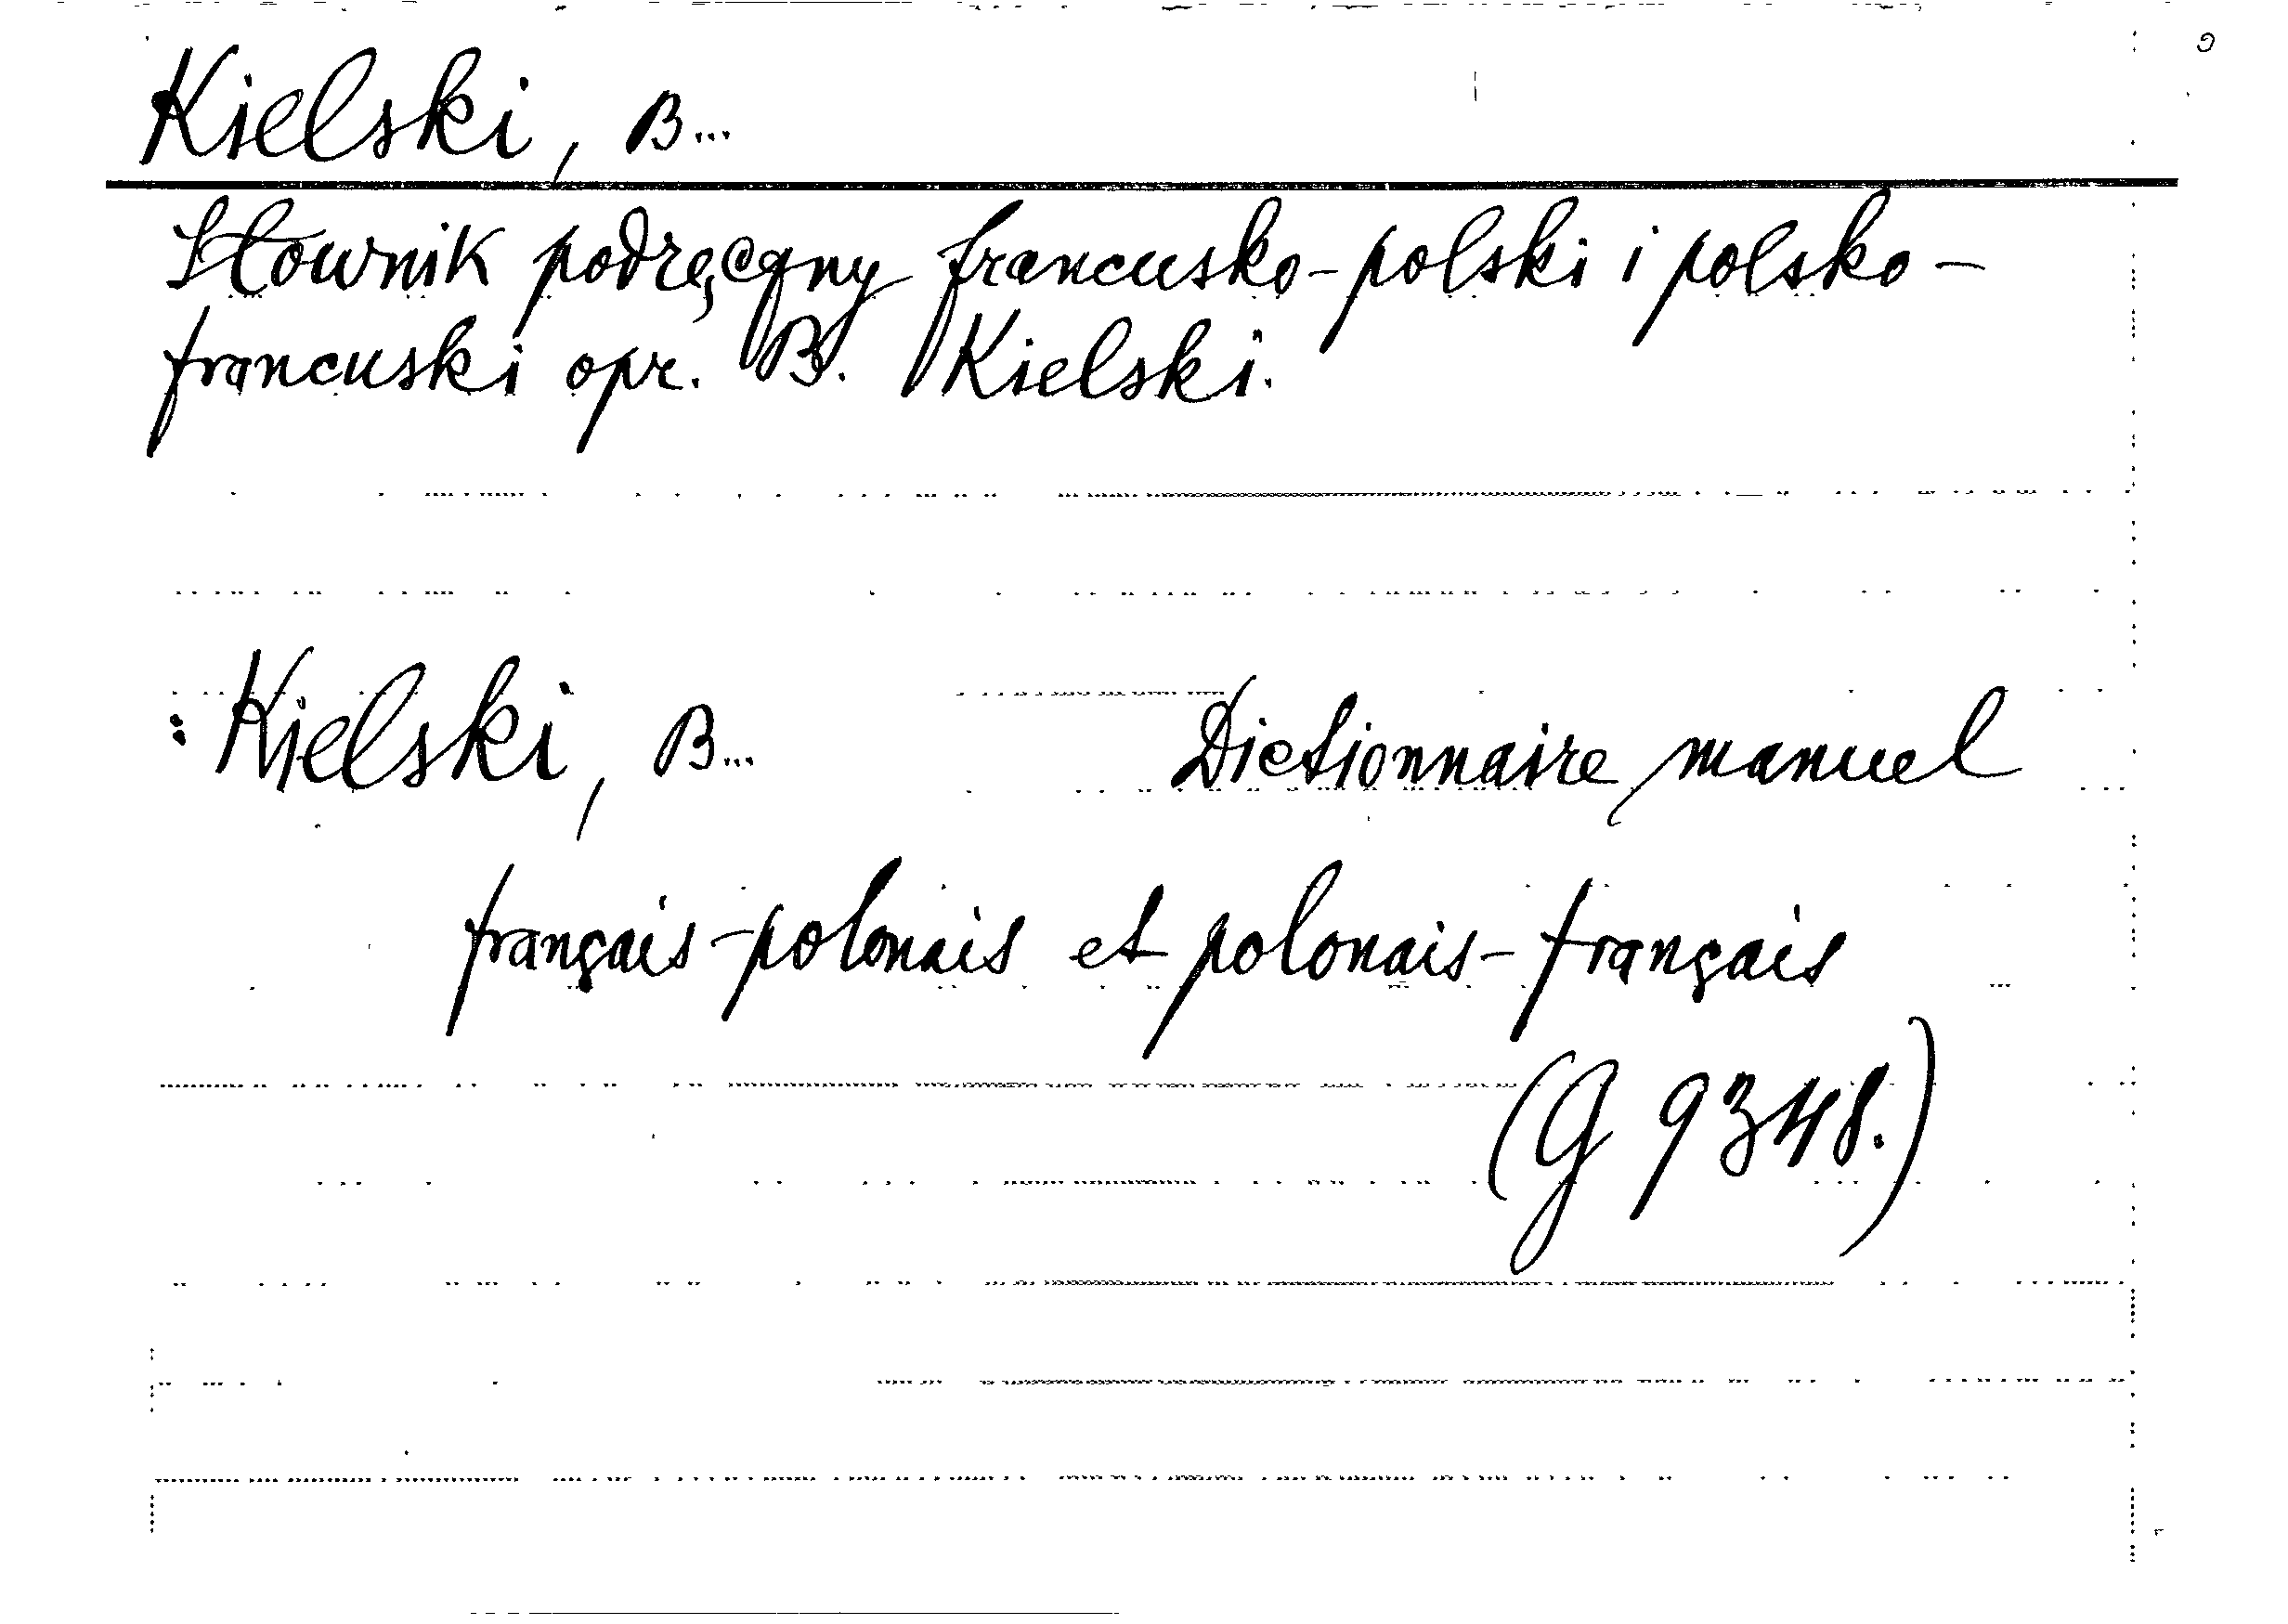 Kielski, B...
Słownik podręczny francusko-polski i polsko-
francuski opr. B. Kielski.
: Kielski, B... Dictionnaire manuel
français-polonais et polonais-français
(G 9348.)